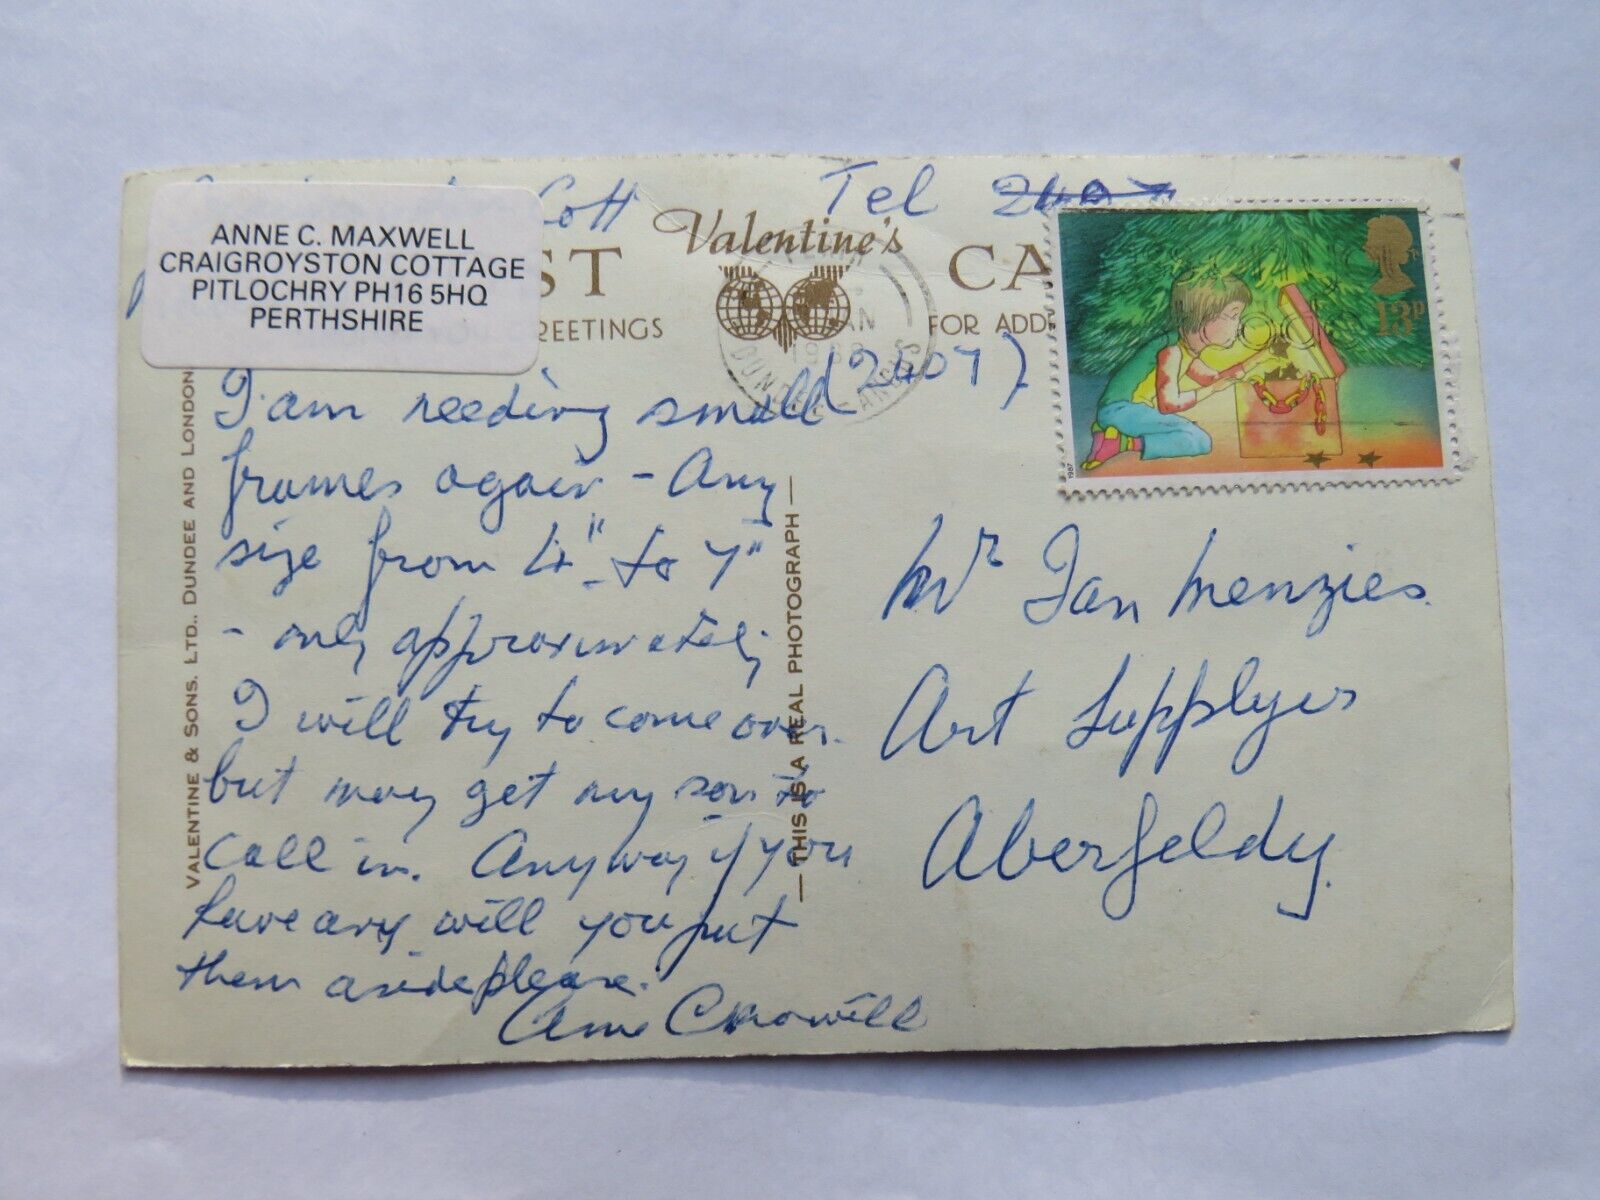 Cott Tel
ANNE C. MAXWELL
CRAIGROYSTON COTTAGE
PITLOCHRY PH16 5HQ
PERTHSHIRE
ST Valentine's CA
REETINGS FOR ADD
AN
DUNDEE ANGUS
(2407)
13P
1987
I am needing small
frames again - Any
size from 4" to 7"
- only approximately
I will try to come over.
but may get my son to
call in. Anyway if you
have any will you put
them aside please.
Anne C Maxwell
VALENTINE & SONS. LTD., DUNDEE AND LONDON
— THIS IS A REAL PHOTOGRAPH —
Mr Ian Menzies.
Art Supplyers
Aberfeldy.